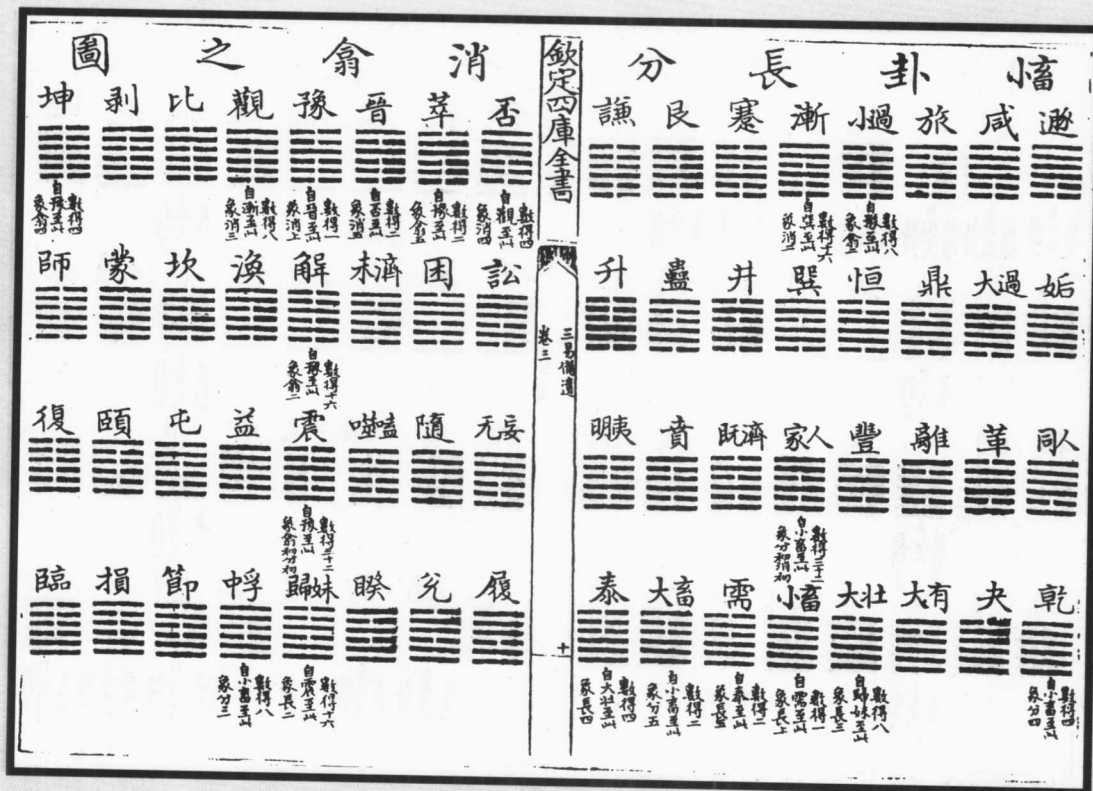 小畜卦長分
遯 咸 旅 小過 漸 蹇 艮 謙
數得八
自豫至此
象翕三
數得十六
自巽至此
象消二
姤 大過 鼎 恒 巽 井 蠱 升
同人 革 離 豐 家人 既濟 賁 明夷
數得三十二
自小畜至此
象分初消初
乾 夬 大有 大壯 小畜 需 大畜 泰
數得四
自小畜至此
象分四
數得八
自歸妹至此
象長三
數得一
自需至此
象長上
數得二
自泰至此
象長五
數得二
自小畜至此
象分五
數得四
自大壯至此
象長四
欽定四庫全書
三易備遺
卷三
十
消翕之圖
否 萃 晉 豫 觀 比 剥 坤
數得四
自觀至此
象消四
數得二
自豫至此
象翕五
數得二
自否至此
象消五
數得一
自晉至此
象消上
數得八
自漸至此
象消三
數得四
自豫至此
象翕四
訟 困 未濟 解 渙 坎 蒙 師
數得十六
自豫至此
象翕二
无妄 隨 噬嗑 震 益 屯 頤 復
數得三十二
自豫至此
象翕初分初
履 兌 睽 歸妹 中孚 節 損 臨
數得十六
自震至此
象長二
數得八
自小畜至此
象分三